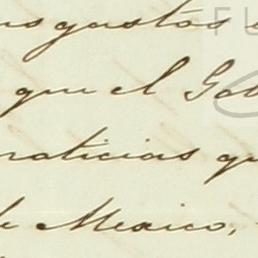 gastos
que el Gob
noticias qu
de Mexico,